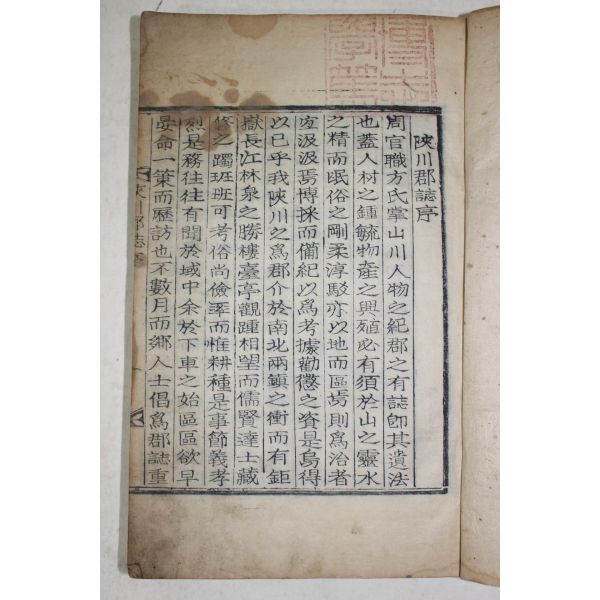 陜川郡誌序
周官職方氏掌山川人物之紀郡之有誌卽其遺法
也蓋人材之鍾毓物產之興殖必有須於山之靈水
之精而氓俗之剛柔淳駁亦以地而區焉則爲治者
宜汲汲焉博採而備紀以爲考據勸懲之資是烏得
以已乎我陜川之爲郡介於南北兩鎭之衝而有鉅
嶽長江林泉之勝樓臺亭觀踵相望而儒賢達士藏
修之躅班班可考俗尙儉率而惟耕種是事節義孝
烈是務往往有聞於域中余於下車之始區區欲早
晏命一策而歷訪也不數月而鄉人士倡爲郡誌重
川郡誌